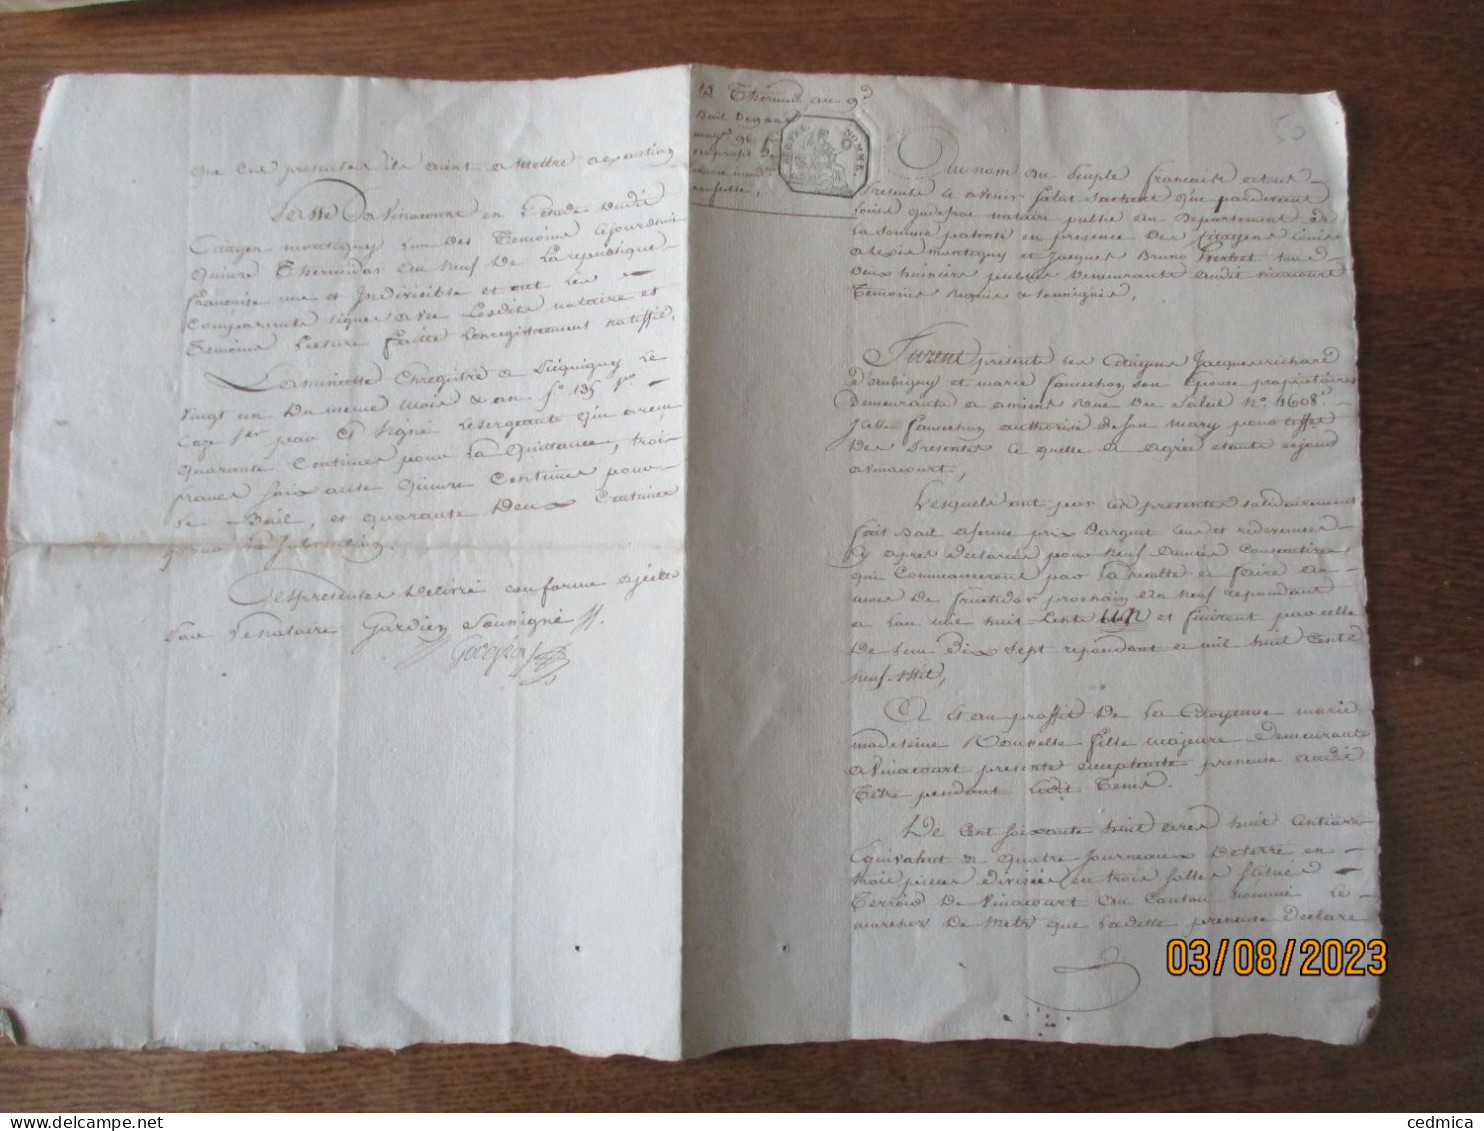 que ces presentes ils aient a Mettre a execution
Passé a Vinacourt en l'Etude dudit
Citoyen montigny l'un des Temoins cejourdhui
quinze Thermidor an neuf de la republique
française une et Indivisible et ont les
Comparants signes avec lesdits notaire et
Temoins lecture faitte lenregistrement notiffié,
La minutte Enregistré a Picquigny le
Vingt un du meme mois & an f.º 135 r.º
Caze 1er par signé Lesergeant qui a recu
quarante Centimes pour la Quittance, trois
francs soixante Quinze Centimes pour
le Bail, et quarante Deux Centimes
pour la subvention.
Cespresentes Delivré conforme
par le notaire Gardien Soussigné
15 Thermid. an 9.e
Bail de 9 ans
au profit de
marie mad.ne
SOMME.
Au nom du Peuple francais a tous
Presents & a venir salut sachent que pardevant
Louis notaire public au Departement de
la Somme patenté en presence des Citoyens Louis
Alexis montigny et Jacques Bruno tous
Deux huissiers publics Demeurants audit vinacourt
Temoins Requis & soussignés,
Furent présents les Citoyens Jacques richard
d'Aubigny et marie famechon son Epouse proprietaires
Demeurants a amiens Rue Du Soleil Nº 4608.
Jcelle famechon authorisé de son mary pour l'effet
Des Presentes ce quelle a agréé étants cejour
a Vinacourt,
Lesquels ont par ces presentes solidairement
fait Bail a ferme prix d'argent et redevances
Cy apres declarées pour neuf années Consecutives
qui Commenceront par la recolte a faire au
mois De fructidor prochain an neuf repondant
a lan mil huit Cents un et finiront par celle
De lan Dix sept repondant a mil huit Cents
neuf
A et au proffit De la Citoyenne marie
madeleine fille majeure demeurante
a Vinacourt presente acceptante preneuse audit
Titre pendant ledit Tems.
De Cent soixante huit ares huit Centiares
Equivalant a quatre Journeaux De terre en
trois pieces divisées en trois solles Situés
Terroir De Vinacourt au Canton nommé le
marchez De Metz que Laditte preneuse declare
03/08/2023
cedmica
delcampe.net